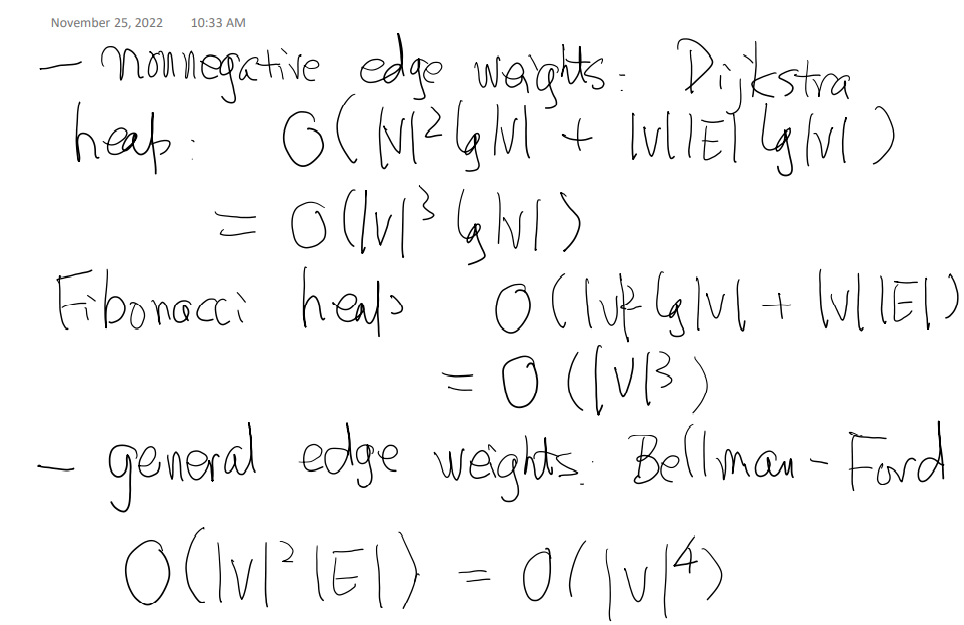 November 25, 2022 10:33 AM
— nonnegative edge weights: Dijkstra
heap: O(|V|² lg|V| + |V||E| lg|V|)
= O(|V|³ lg|V|)
Fibonacci heap O(|V|² lg|V| + |V||E|)
= O(|V|³)
— general edge weights: Bellman-Ford
O(|V|²|E|) = O(|V|⁴)